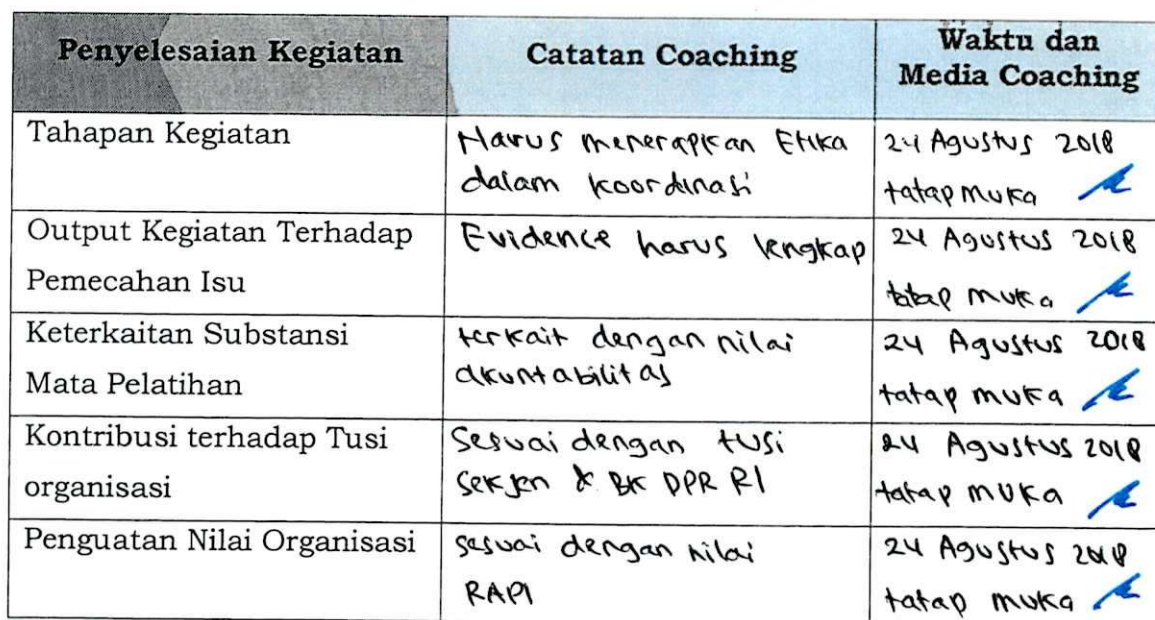 Penyelesaian Kegiatan
Catatan Coaching
Waktu dan
Media Coaching
Tahapan Kegiatan
Harus menerapkan Etika
dalam koordinasi
24 Agustus 2018
tatap muka
Output Kegiatan Terhadap
Pemecahan Isu
Evidence harus lengkap
24 Agustus 2018
tatap muka
Keterkaitan Substansi
Mata Pelatihan
terkait dengan nilai
akuntabilitas
24 Agustus 2018
tatap muka
Kontribusi terhadap Tusi
organisasi
Sesuai dengan tusi
Sekjen & BK DPR RI
24 Agustus 2018
tatap muka
Penguatan Nilai Organisasi
sesuai dengan nilai
RAPI
24 Agustus 2018
tatap muka